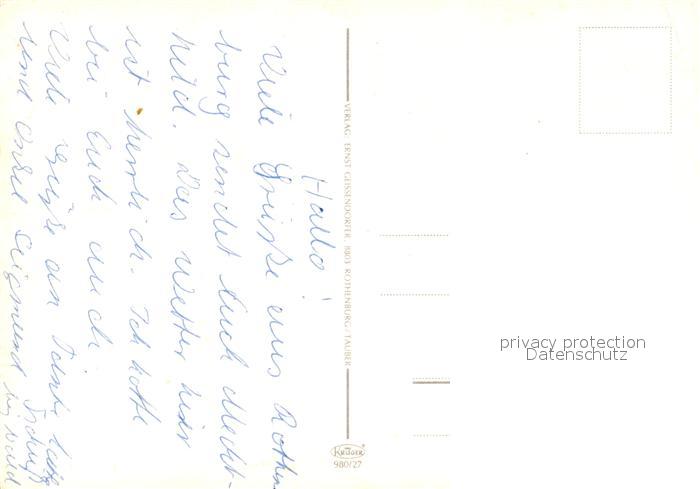 Hallo!
Viele Grüße aus Rothen-
burg sendet Euch Mecht-
hild. Das Wetter hier
ist herrlich. Ich hoffe
bei Euch auch.
Viele Grüße an Tante
und Onkel Sigmund
VERLAG ERNST GEISSENDÖRFER, 8803 ROTHENBURG/TAUBER
KRÜGER
980/27
privacy protection
Datenschutz